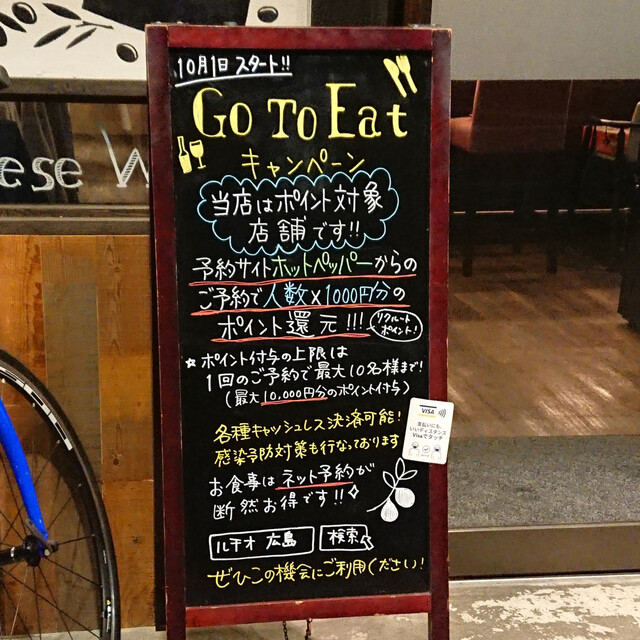 ese W
10月1日 スタート!!
Go To Eat
キャンペーン
当店はポイント対象
店舗です!!
予約サイトホットペッパーからの
ご予約で人数×1000円分の
ポイント還元!!!
リクルート
ポイント!
☆ポイント付与の上限は
1回のご予約で最大10名様まで!
(最大10,000円分のポイント付与)
各種キャッシュレス決済可能!
感染予防対策も行なっております
VISA
支払いにも、
いいディスタンス
Visaでタッチ
お食事はネット予約が
断然お得です!!
ルチオ 広島 検索
ぜひこの機会にご利用ください!